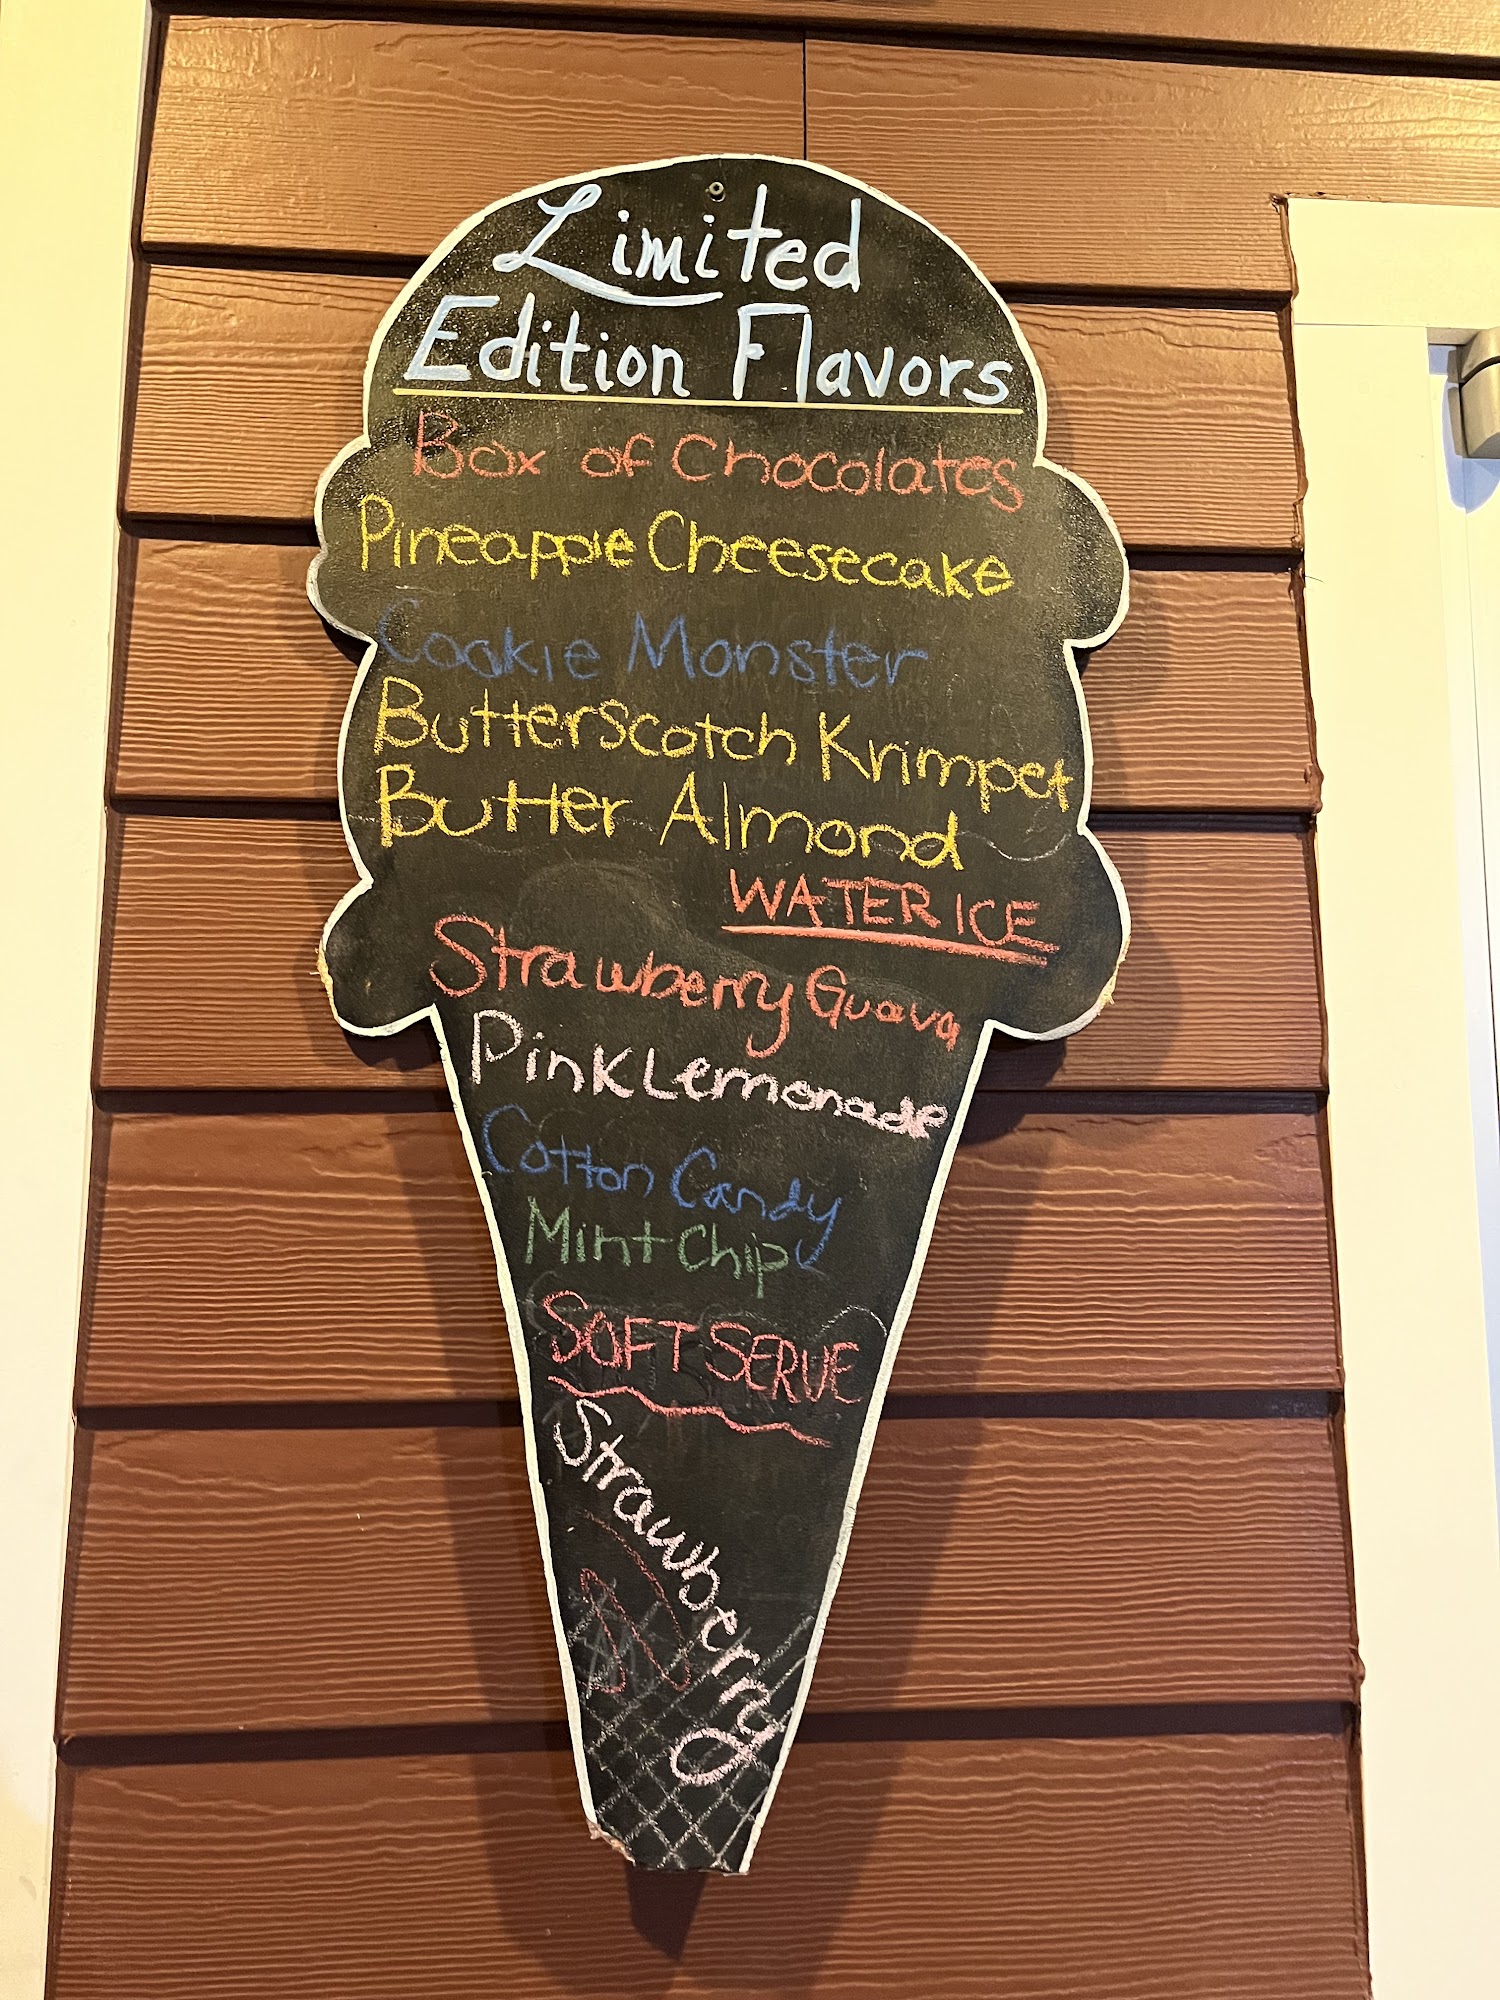 Limited
Edition Flavors
Box of Chocolates
Pineapple Cheesecake
Cookie Monster
Butterscotch Krimpet
Butter Almond
WATER ICE
Strawberry Guava
Pink Lemonade
Cotton Candy
Mint Chip
SOFT SERVE
Strawberry